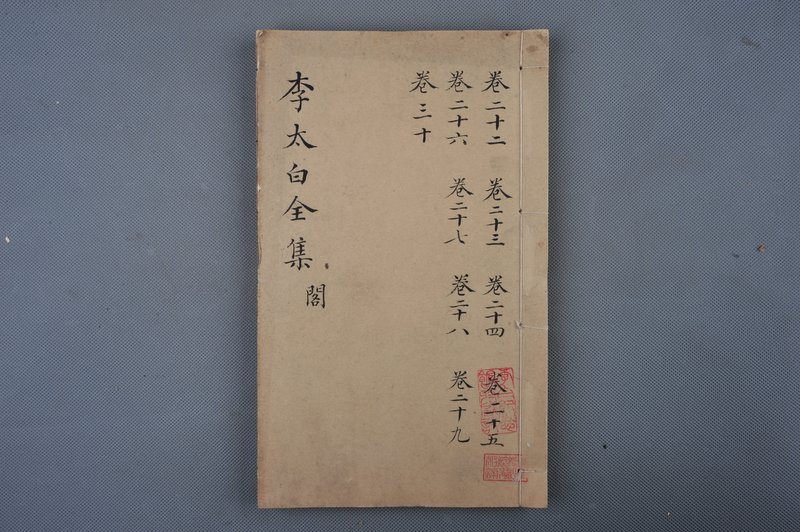 卷二十二 卷二十三 卷二十四 卷二十五
卷二十六 卷二十七 卷二十八 卷二十九
卷三十
李太白全集 閣